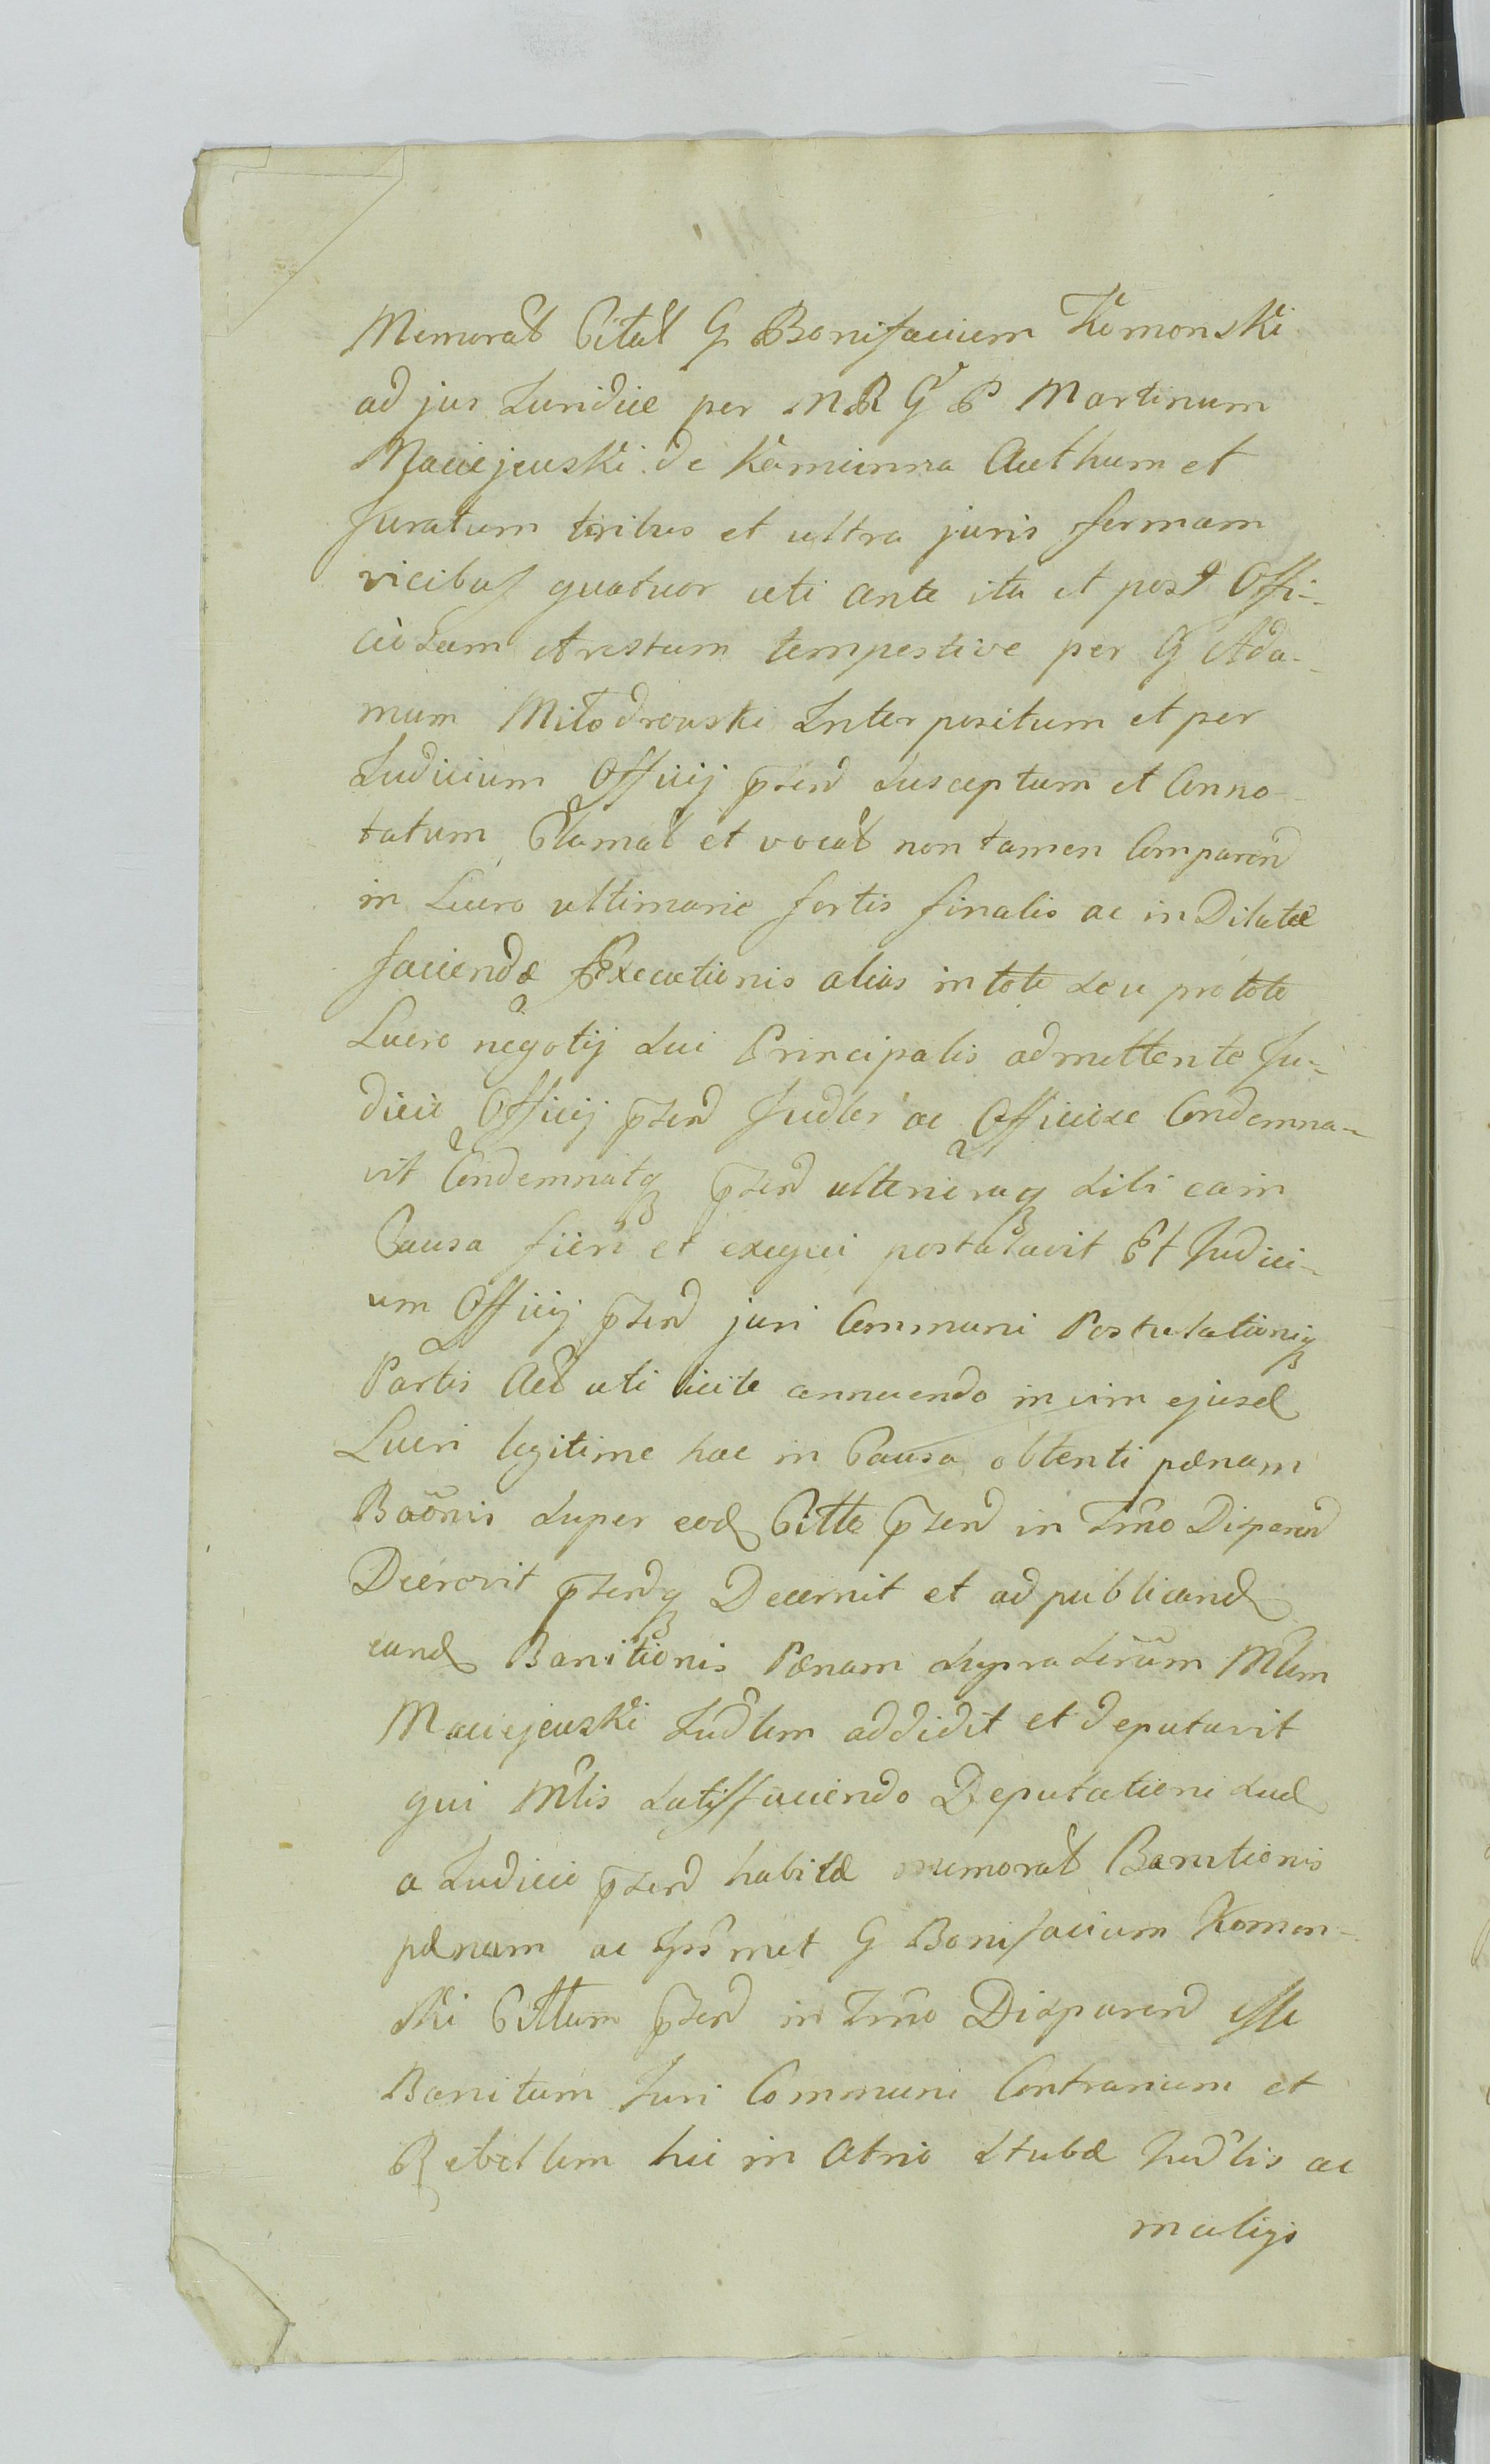 Memorat Citat G Bonifacium Komonski
ad jus Juridice per M R G P Martinum
Maciejewski de Kamienna Authum et
Juratum tribus et ultra juris formam
vicibus quatuor uti ante ita et post Offi-
ciosum Arestum tempestive per G Ada-
mum Młodrowski Interpositum et per
Judicium Officij pñtend susceptum et Conno-
tatum, Clamat et vocat non tamen Comparend
in Lucro ultimarie sortis finalis ac in Dilatæ
faciendæ Executionis alias in toto seu pro toto
Lucro negotij sui Principalis admittente Ju-
dicio Officij judler ac Officiose Condemna-
vit Condemnatq ulterioraq sibi eam
Causa fieri et exequi postulavit Et Judici-
um Officij juri Communi Postulationiq
Partis Act uti licite annuendo in vim ejusd
Lucri legitime hac in Causa obtenti pœnam
Baõnis super eod Citto in Tmo Disparend
Decrevit Decernit et ad publicand
eand Banitionis Pœnam supra Mlem
Maciejewski Judlem addidit et deputavit
qui Mlis satisfaciendo Deputationi suæ
a Judicio habitæ memorat Banitionis
pœnam ac met G Bonifacium Komon-
ski Cittum in Tmo Disparend esse
Banitum Juri Communi Contrarium et
Rebellem hic in Atrio stubæ Judlis ac